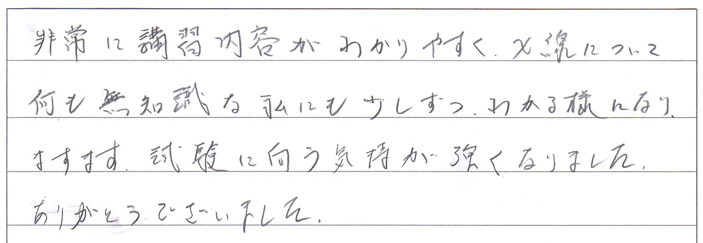 非常に講習内容がわかりやすく、X線について
何も無知識な私にも少しずつ、わかる様になり、
ますます、試験に向う気持が強くなりました。
ありがとうございました。